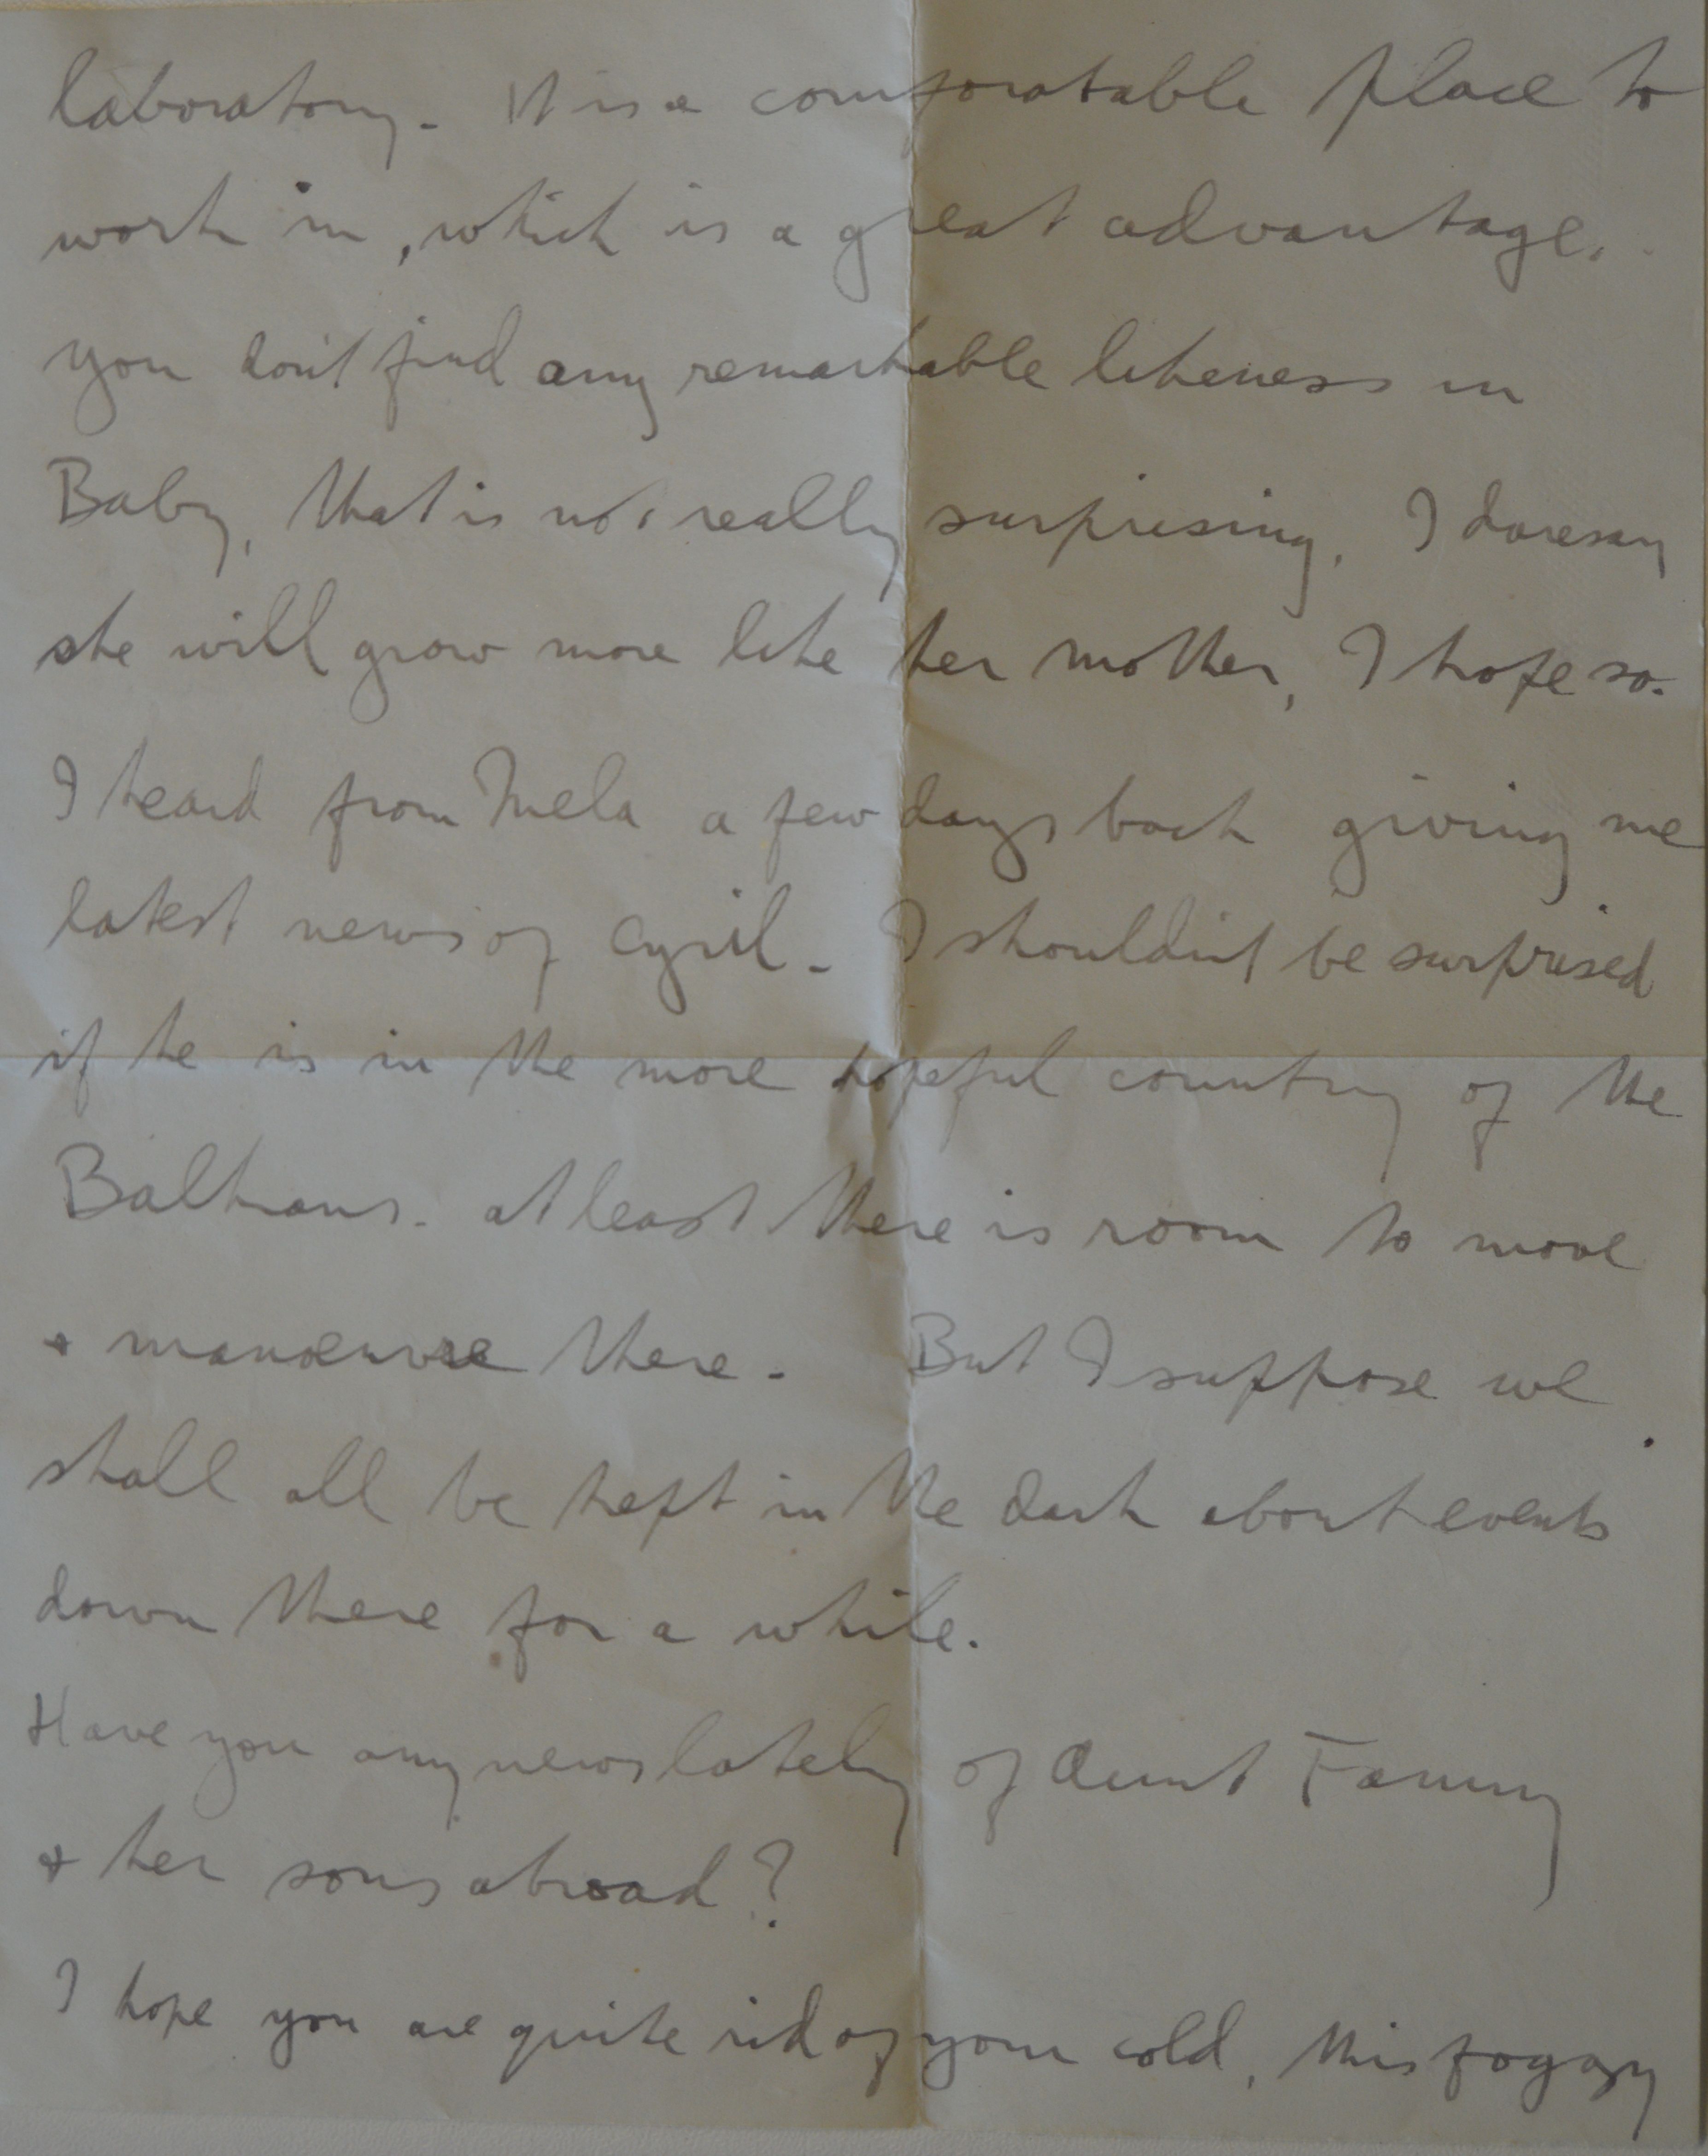 laboratory. It is a comfortable place to
work in, which is a great advantage.
you don't find any remarkable likeness in
Baby, that is not really surprising. I daresay
she will grow more like her mother, I hope so.
I heard from Mela a few days back giving me
latest news of Cyril. I shouldn't be surprised
if he is in the more hopeful country of the
Balkans. at least there is room to move
+ manoeuvre there. But I suppose we
shall all be kept in the dark about events
down there for a while.
Have you any news lately of Aunt Fanny
+ her sons abroad?
I hope you are quite rid of your cold, this foggy